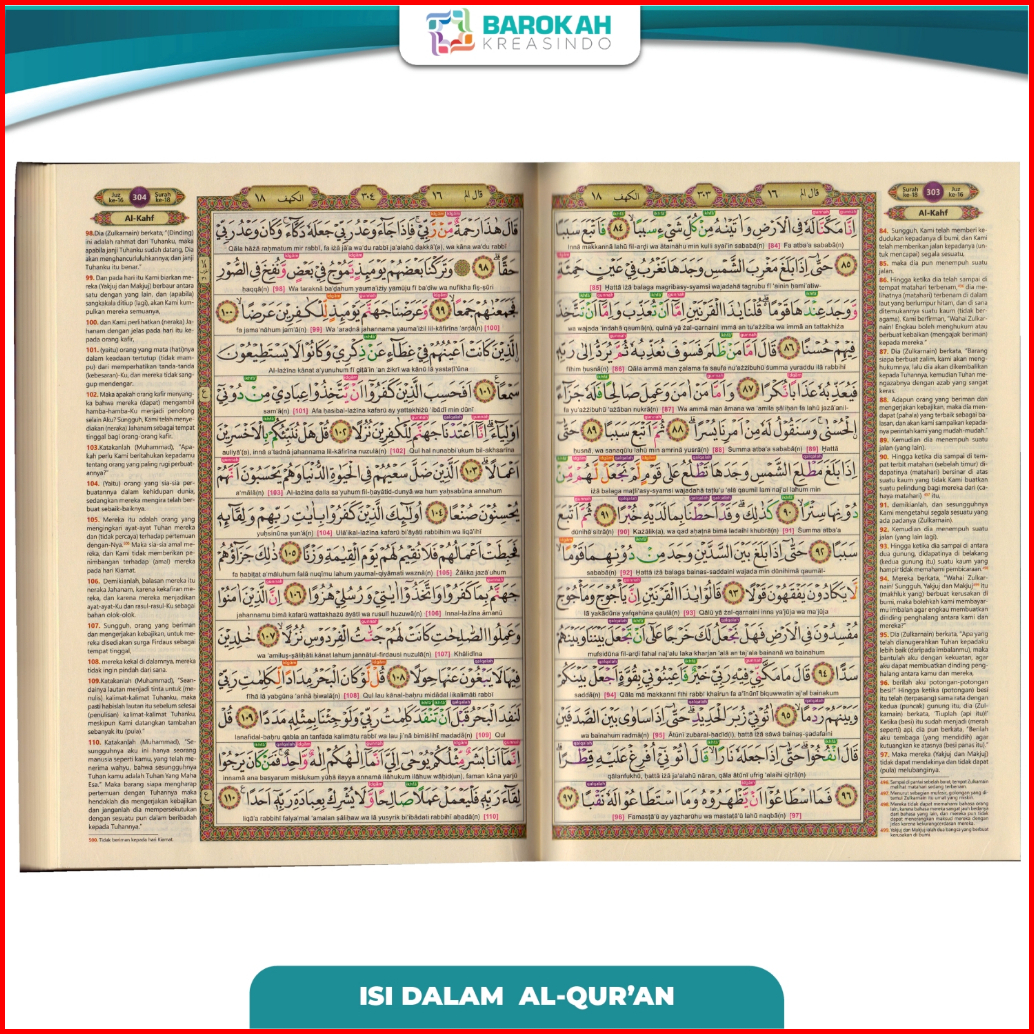 BAROKAH
KREASINDO
Surah ke-18
303
Juz ke-16
Al-Kahf
قال الم ١٦
٣٠٣
الكهف ١٨
اِنَّا مَكَّنَّا لَهٗ فِى الْاَرْضِ وَاٰتَيْنٰهُ مِنْ كُلِّ شَيْءٍ سَبَبًا ۙ ٨٤ فَاَتْبَعَ سَبَبًا ٨٥
Innā makkannā lahū fil-arḍi wa ātaināhu min kulli syai'in sababā(n) [84] Fa atba'a sababā(n)
حَتّٰىٓ اِذَا بَلَغَ مَغْرِبَ الشَّمْسِ وَجَدَهَا تَغْرُبُ فِيْ عَيْنٍ حَمِئَةٍ
[85] Ḥattā iżā balaga magribasy-syamsi wajadahā tagrubu fī 'ainin ḥami'atiw
وَّوَجَدَ عِنْدَهَا قَوْمًا ەۗ قُلْنَا يٰذَا الْقَرْنَيْنِ اِمَّآ اَنْ تُعَذِّبَ وَاِمَّآ اَنْ تَتَّخِذَ
wa wajada 'indahā qaumā(n), qulnā yā żal-qarnaini immā an tu'ażżiba wa immā an tattakhiża
فِيْهِمْ حُسْنًا ٨٦ قَالَ اَمَّا مَنْ ظَلَمَ فَسَوْفَ نُعَذِّبُهٗ ثُمَّ يُرَدُّ اِلٰى رَبِّهٖ
fīhim ḥusnā(n) [86] Qāla ammā man ẓalama fa saufa nu'ażżibuhū ṡumma yuraddu ilā rabbihī
فَيُعَذِّبُهٗ عَذَابًا نُّكْرًا ٨٧ وَاَمَّا مَنْ اٰمَنَ وَعَمِلَ صَالِحًا فَلَهٗ جَزَاۤءً
fa yu'ażżibuhū 'ażāban nukrā(n) [87] Wa ammā man āmana wa 'amila ṣāliḥan fa lahū jazā'anil-
ۨالْحُسْنٰىۚ وَسَنَقُوْلُ لَهٗ مِنْ اَمْرِنَا يُسْرًا ۗ ٨٨ ثُمَّ اَتْبَعَ سَبَبًا ٨٩ حَتّٰىٓ
ḥusnā, wa sanaqūlu lahū min amrinā yusrā(n) [88] Ṡumma atba'a sababā(n) [89] Ḥattā
اِذَا بَلَغَ مَطْلِعَ الشَّمْسِ وَجَدَهَا تَطْلُعُ عَلٰى قَوْمٍ لَّمْ نَجْعَلْ لَّهُمْ مِّنْ
iżā balaga maṭli'asy-syamsi wajadahā taṭlu'u 'alā qaumil lam naj'al lahum min
دُوْنِهَا سِتْرًا ۙ ٩٠ كَذٰلِكَۗ وَقَدْ اَحَطْنَا بِمَا لَدَيْهِ خُبْرًا ٩١ ثُمَّ اَتْبَعَ
dūnihā sitrā(n) [90] Każālik(a), wa qad aḥaṭnā bimā ladaihi khubrā(n) [91] Ṡumma atba'a
سَبَبًا ٩٢ حَتّٰىٓ اِذَا بَلَغَ بَيْنَ السَّدَّيْنِ وَجَدَ مِنْ دُوْنِهِمَا قَوْمًاۙ
sababā(n) [92] Ḥattā iżā balaga bainas-saddaini wajada min dūnihimā qaumal-
لَّا يَكَادُوْنَ يَفْقَهُوْنَ قَوْلًا ٩٣ قَالُوْا يٰذَا الْقَرْنَيْنِ اِنَّ يَأْجُوْجَ وَمَأْجُوْجَ
lā yakādūna yafqahūna qaulā(n) [93] Qālū yā żal-qarnaini inna ya'jūja wa ma'jūja
مُفْسِدُوْنَ فِى الْاَرْضِ فَهَلْ نَجْعَلُ لَكَ خَرْجًا عَلٰىٓ اَنْ تَجْعَلَ بَيْنَنَا وَبَيْنَهُمْ
mufsidūna fil-arḍi fahal naj'alu laka kharjan 'alā an taj'ala bainanā wa bainahum
سَدًّا ٩٤ قَالَ مَا مَكَّنِّيْ فِيْهِ رَبِّيْ خَيْرٌ فَاَعِيْنُوْنِيْ بِقُوَّةٍ اَجْعَلْ بَيْنَكُمْ
saddā(n) [94] Qāla mā makkannī fīhi rabbī khairun fa a'īnūnī biquwwatin aj'al bainakum
وَبَيْنَهُمْ رَدْمًا ۙ ٩٥ اٰتُوْنِيْ زُبَرَ الْحَدِيْدِۗ حَتّٰىٓ اِذَا سَاوٰى بَيْنَ الصَّدَفَيْنِ
wa bainahum radmā(n) [95] Ātūnī zubaral-ḥadīd(i), ḥattā iżā sāwā bainaṣ-ṣadafaini
قَالَ انْفُخُوْا ۗحَتّٰىٓ اِذَا جَعَلَهٗ نَارًاۙ قَالَ اٰتُوْنِيْٓ اُفْرِغْ عَلَيْهِ قِطْرًا ۗ
qālanfukhū, ḥattā iżā ja'alahū nāran, qāla ātūnī ufrig 'alaihi qiṭrā(n)
٩٦ فَمَا اسْطَاعُوْٓا اَنْ يَّظْهَرُوْهُ وَمَا اسْتَطَاعُوْا لَهٗ نَقْبًا ٩٧
[96] Famasṭā'ū ay yaẓharūhu wa mastaṭā'ū lahū naqbā(n) [97]
84. Sungguh, Kami telah memberi ke-
dudukan kepadanya di bumi, dan Kami
telah memberikan jalan kepadanya (un-
tuk mencapai) segala sesuatu,
85. maka dia pun menempuh suatu
jalan.
86. Hingga ketika dia telah sampai di
tempat matahari terbenam, dia me-
lihatnya (matahari) terbenam di dalam
laut yang berlumpur hitam, dan di sana
ditemukannya suatu kaum (tidak ber-
agama). Kami berfirman, "Wahai Zulkar-
nain! Engkau boleh menghukum atau
berbuat kebaikan (mengajak beriman)
kepada mereka."
87. Dia (Zulkarnain) berkata, "Barang
siapa berbuat zalim, kami akan meng-
hukumnya, lalu dia akan dikembalikan
kepada Tuhannya, kemudian Tuhan me-
ngazabnya dengan azab yang sangat
keras.
88. Adapun orang yang beriman dan
mengerjakan kebajikan, maka dia men-
dapat (pahala) yang terbaik sebagai ba-
lasan, dan akan kami sampaikan kepada-
nya perintah kami yang mudah-mudah."
89. Kemudian dia menempuh suatu
jalan (yang lain).
90. Hingga ketika dia sampai di tem-
pat terbit matahari (sebelah timur) di-
dapatinya (matahari) bersinar di atas
suatu kaum yang tidak Kami buatkan
suatu pelindung bagi mereka dari (ca-
haya matahari) itu,
91. demikianlah, dan sesungguhnya
Kami mengetahui segala sesuatu yang
ada padanya (Zulkarnain).
92. Kemudian dia menempuh suatu
jalan (yang lain lagi).
93. Hingga ketika dia sampai di antara
dua gunung, didapatinya di belakang
(kedua gunung itu) suatu kaum yang
hampir tidak memahami pembicaraan.
94. Mereka berkata, "Wahai Zulkar-
nain! Sungguh, Yakjuj dan Makjuj itu
(makhluk yang) berbuat kerusakan di
bumi, maka bolehkah kami membayar-
mu imbalan agar engkau membuatkan
dinding penghalang antara kami dan
mereka?"
95. Dia (Zulkarnain) berkata, "Apa yang
telah dianugerahkan Tuhan kepadaku
lebih baik (daripada imbalanmu), maka
bantulah aku dengan kekuatan, agar
aku dapat membuatkan dinding peng-
halang antara kamu dan mereka.
96. berilah aku potongan-potongan
besi!" Hingga ketika (potongan) besi
itu telah (terpasang) sama rata dengan
kedua (puncak) gunung itu, dia (Zul-
karnain) berkata, "Tiuplah (api itu)!"
Ketika (besi) itu sudah menjadi (merah
seperti) api, dia pun berkata, "Berilah
aku tembaga (yang mendidih) agar
kutuangkan ke atasnya (besi panas itu)."
97. Maka mereka (Yakjuj dan Makjuj)
tidak dapat mendakinya dan tidak dapat
(pula) melubanginya.
Juz ke-16
304
Surah ke-18
Al-Kahf
قال الم ١٦
٣٠٤
الكهف ١٨
قَالَ هٰذَا رَحْمَةٌ مِّنْ رَّبِّيْۚ فَاِذَا جَاۤءَ وَعْدُ رَبِّيْ جَعَلَهٗ دَكَّاۤءَۚ وَكَانَ وَعْدُ رَبِّيْ
Qāla hāżā raḥmatum mir rabbī, fa iżā jā'a wa'du rabbī ja'alahū dakkā'(a), wa kāna wa'du rabbī
حَقًّا ۗ ٩٨ وَتَرَكْنَا بَعْضَهُمْ يَوْمَىِٕذٍ يَّمُوْجُ فِيْ بَعْضٍ وَّنُفِخَ فِى الصُّوْرِ
ḥaqqā(n) [98] Wa taraknā ba'ḍahum yauma'iżiy yamūju fī ba'ḍiw wa nufikha fiṣ-ṣūri
فَجَمَعْنٰهُمْ جَمْعًا ۙ ٩٩ وَّعَرَضْنَا جَهَنَّمَ يَوْمَىِٕذٍ لِّلْكٰفِرِيْنَ عَرْضًا ۙ ١٠٠
fa jama'nāhum jam'ā(n) [99] Wa 'araḍnā jahannama yauma'iżil lil-kāfirīna 'arḍā(n) [100]
الَّذِيْنَ كَانَتْ اَعْيُنُهُمْ فِيْ غِطَاۤءٍ عَنْ ذِكْرِيْ وَكَانُوْا لَا يَسْتَطِيْعُوْنَ
Al-lażīna kānat a'yunuhum fī giṭā'in 'an żikrī wa kānū lā yastaṭī'ūna
سَمْعًا ١٠١ اَفَحَسِبَ الَّذِيْنَ كَفَرُوْٓا اَنْ يَّتَّخِذُوْا عِبَادِيْ مِنْ دُوْنِيْٓ
sam'ā(n) [101] Afa ḥasibal-lażīna kafarū ay yattakhiżū 'ibādī min dūnī
اَوْلِيَاۤءَ ۗاِنَّآ اَعْتَدْنَا جَهَنَّمَ لِلْكٰفِرِيْنَ نُزُلًا ١٠٢ قُلْ هَلْ نُنَبِّئُكُمْ بِالْاَخْسَرِيْنَ
auliyā'(a), innā a'tadnā jahannama lil-kāfirīna nuzulā(n) [102] Qul hal nunabbi'ukum bil-akhsarīna
اَعْمَالًا ۗ ١٠٣ اَلَّذِيْنَ ضَلَّ سَعْيُهُمْ فِى الْحَيٰوةِ الدُّنْيَا وَهُمْ يَحْسَبُوْنَ اَنَّهُمْ
a'mālā(n) [103] Al-lażīna ḍalla sa'yuhum fil-ḥayātid-dunyā wa hum yaḥsabūna annahum
يُحْسِنُوْنَ صُنْعًا ١٠٤ اُولٰۤىِٕكَ الَّذِيْنَ كَفَرُوْا بِاٰيٰتِ رَبِّهِمْ وَلِقَاۤىِٕهٖ
yuḥsinūna ṣun'ā(n) [104] Ulā'ikal-lażīna kafarū bi'āyāti rabbihim wa liqā'ihī
فَحَبِطَتْ اَعْمَالُهُمْ فَلَا نُقِيْمُ لَهُمْ يَوْمَ الْقِيٰمَةِ وَزْنًا ١٠٥ ذٰلِكَ جَزَاۤؤُهُمْ
fa ḥabiṭat a'māluhum falā nuqīmu lahum yaumal-qiyāmati waznā(n) [105] Żālika jazā'uhum
جَهَنَّمُ بِمَا كَفَرُوْا وَاتَّخَذُوْٓا اٰيٰتِيْ وَرُسُلِيْ هُزُوًا ١٠٦ اِنَّ الَّذِيْنَ اٰمَنُوْا
jahannamu bimā kafarū wattakhażū āyātī wa rusulī huzuwā(n) [106] Innal-lażīna āmanū
وَعَمِلُوا الصّٰلِحٰتِ كَانَتْ لَهُمْ جَنّٰتُ الْفِرْدَوْسِ نُزُلًا ۙ ١٠٧ خٰلِدِيْنَ
wa 'amiluṣ-ṣāliḥāti kānat lahum jannātul-firdausi nuzulā(n) [107] Khālidīna
فِيْهَا لَا يَبْغُوْنَ عَنْهَا حِوَلًا ١٠٨ قُلْ لَّوْ كَانَ الْبَحْرُ مِدَادًا لِّكَلِمٰتِ رَبِّيْ
fīhā lā yabgūna 'anhā ḥiwalā(n) [108] Qul lau kānal-baḥru midādal likalimāti rabbī
لَنَفِدَ الْبَحْرُ قَبْلَ اَنْ تَنْفَدَ كَلِمٰتُ رَبِّيْ وَلَوْ جِئْنَا بِمِثْلِهٖ مَدَدًا ١٠٩ قُلْ
lanafidal-baḥru qabla an tanfada kalimātu rabbī wa lau ji'nā bimiṡlihī madadā(n) [109] Qul
اِنَّمَآ اَنَا۠ بَشَرٌ مِّثْلُكُمْ يُوْحٰىٓ اِلَيَّ اَنَّمَآ اِلٰهُكُمْ اِلٰهٌ وَّاحِدٌۚ فَمَنْ كَانَ يَرْجُوْا
innamā ana basyarum miṡlukum yūḥā ilayya annamā ilāhukum ilāhuw wāḥid(un), faman kāna yarjū
لِقَاۤءَ رَبِّهٖ فَلْيَعْمَلْ عَمَلًا صَالِحًا وَّلَا يُشْرِكْ بِعِبَادَةِ رَبِّهٖٓ اَحَدًا ١١٠
liqā'a rabbihī falya'mal 'amalan ṣāliḥaw wa lā yusyrik bi'ibādati rabbihī aḥadā(n) [110]
98. Dia (Zulkarnain) berkata, "(Dinding)
ini adalah rahmat dari Tuhanku, maka
apabila janji Tuhanku sudah datang, Dia
akan menghancurluluhkannya; dan janji
Tuhanku itu benar."
99. Dan pada hari itu Kami biarkan me-
reka (Yakjuj dan Makjuj) berbaur antara
satu dengan yang lain, dan (apabila)
sangkakala ditiup (lagi), akan Kami kum-
pulkan mereka semuanya,
100. dan Kami perlihatkan (neraka) Ja-
hanam dengan jelas pada hari itu ke-
pada orang kafir,
101. (yaitu) orang yang mata (hati)nya
dalam keadaan tertutup (tidak mam-
pu) dari memperhatikan tanda-tanda
(kebesaran)-Ku, dan mereka tidak sang-
gup mendengar.
102. Maka apakah orang kafir menyang-
ka bahwa mereka (dapat) mengambil
hamba-hamba-Ku menjadi penolong
selain Aku? Sungguh, Kami telah menye-
diakan (neraka) Jahanam sebagai tempat
tinggal bagi orang-orang kafir.
103.Katakanlah (Muhammad), "Apa-
kah perlu Kami beritahukan kepadamu
tentang orang yang paling rugi perbuat-
annya?"
104. (Yaitu) orang yang sia-sia per-
buatannya dalam kehidupan dunia,
sedangkan mereka mengira telah ber-
buat sebaik-baiknya.
105. Mereka itu adalah orang yang
mengingkari ayat-ayat Tuhan mereka
dan (tidak percaya) terhadap pertemuan
dengan-Nya. Maka sia-sia amal me-
reka, dan Kami tidak memberikan pe-
nimbangan terhadap (amal) mereka
pada hari Kiamat.
106. Demikianlah, balasan mereka itu
neraka Jahanam, karena kekafiran me-
reka, dan karena mereka menjadikan
ayat-ayat-Ku dan rasul-rasul-Ku sebagai
bahan olok-olok.
107. Sungguh, orang yang beriman
dan mengerjakan kebajikan, untuk me-
reka disediakan surga Firdaus sebagai
tempat tinggal,
108. mereka kekal di dalamnya, mereka
tidak ingin pindah dari sana.
109.Katakanlah (Muhammad), "Sean-
dainya lautan menjadi tinta untuk (me-
nulis) kalimat-kalimat Tuhanku, maka
pasti habislah lautan itu sebelum selesai
(penulisan) kalimat-kalimat Tuhanku,
meskipun Kami datangkan tambahan
sebanyak itu (pula)."
110. Katakanlah (Muhammad), "Se-
sungguhnya aku ini hanya seorang
manusia seperti kamu, yang telah me-
nerima wahyu, bahwa sesungguhnya
Tuhan kamu adalah Tuhan Yang Maha
Esa." Maka barang siapa mengharap
pertemuan dengan Tuhannya maka
hendaklah dia mengerjakan kebajikan
dan janganlah dia mempersekutukan
dengan sesuatu pun dalam beribadah
kepada Tuhannya."
500 Tidak beriman kepada hari Kiamat.
ISI DALAM AL-QUR'AN